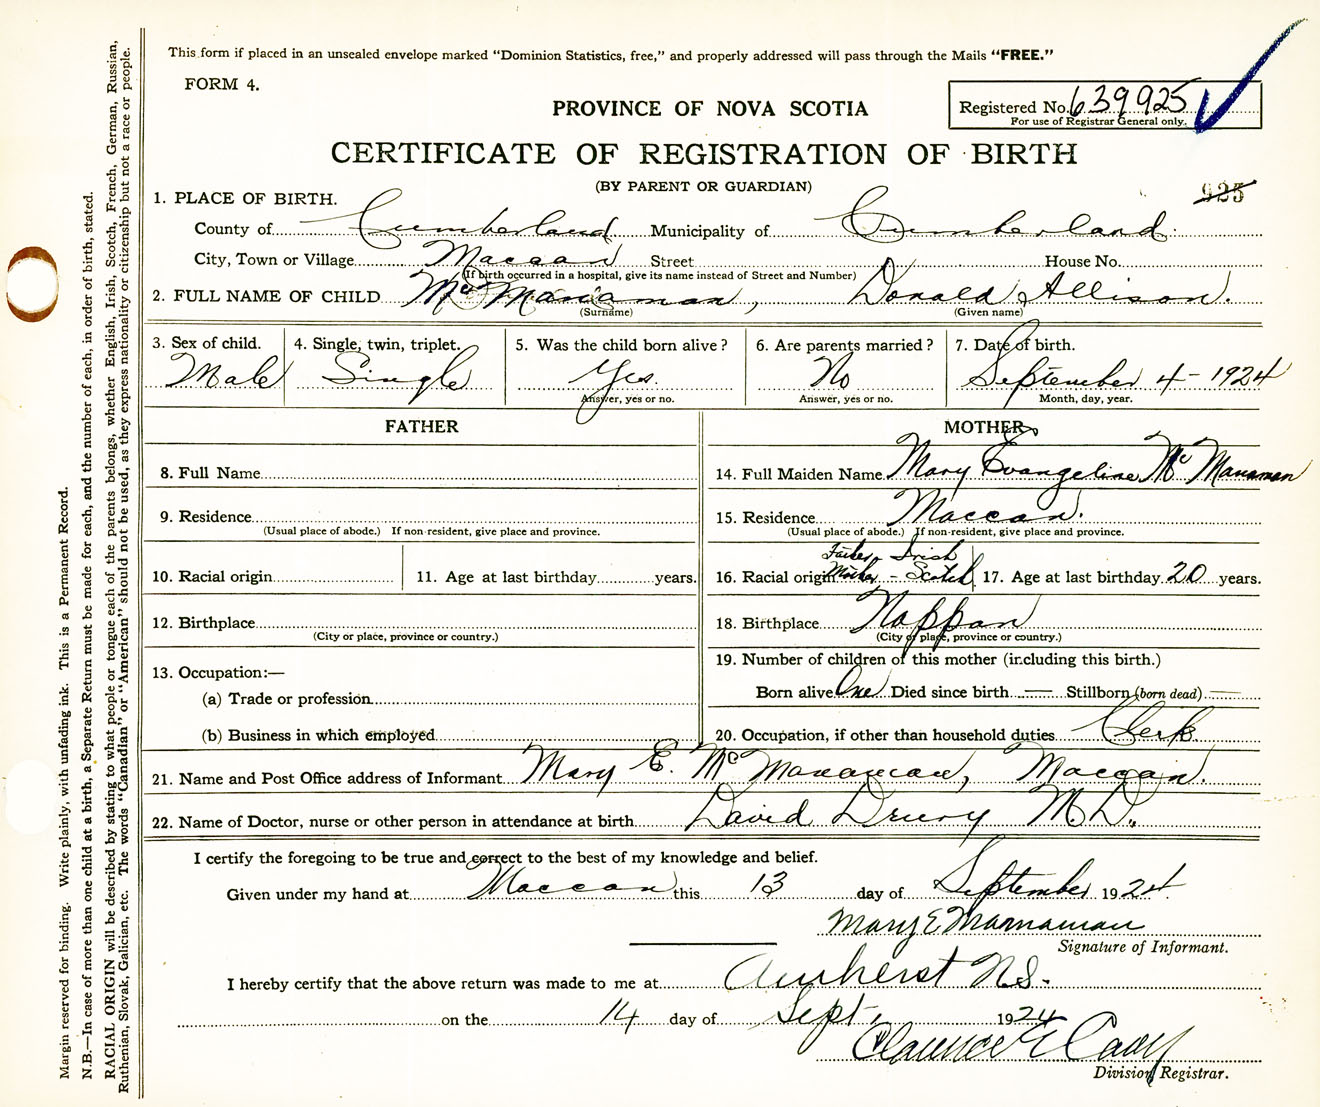 This form if placed in an unsealed envelope marked "Dominion Statistics, free," and properly addressed will pass through the Mails "FREE."
FORM 4.
Registered No. 639925
For use of Registrar General only.
PROVINCE OF NOVA SCOTIA
CERTIFICATE OF REGISTRATION OF BIRTH
(BY PARENT OR GUARDIAN)
925
1. PLACE OF BIRTH.
County of Cumberland Municipality of Cumberland
City, Town or Village Maccan Street House No.
(If birth occurred in a hospital, give its name instead of Street and Number)
2. FULL NAME OF CHILD McManaman, Donald Allison.
(Surname) (Given name)
3. Sex of child. 4. Single, twin, triplet. 5. Was the child born alive? 6. Are parents married? 7. Date of birth.
Male Single Yes. No September 4 - 1924
Answer, yes or no. Answer, yes or no. Month, day, year.
FATHER
8. Full Name
9. Residence
(Usual place of abode.) If non-resident, give place and province.
10. Racial origin 11. Age at last birthday years.
12. Birthplace
(City or place, province or country.)
13. Occupation:—
(a) Trade or profession
(b) Business in which employed
MOTHER
14. Full Maiden Name Mary Evangeline McManaman
15. Residence Maccan.
(Usual place of abode.) If non-resident, give place and province.
Father - Irish
16. Racial origin Mother - Scotch 17. Age at last birthday 20 years.
18. Birthplace Nappan
(City or place, province or country.)
19. Number of children of this mother (including this birth.)
Born alive One Died since birth — Stillborn (born dead) —
20. Occupation, if other than household duties Clerk.
21. Name and Post Office address of Informant Mary E. McManaman, Maccan.
22. Name of Doctor, nurse or other person in attendance at birth David Drury M.D.
I certify the foregoing to be true and correct to the best of my knowledge and belief.
Given under my hand at Maccan this 13 day of September 1924.
Mary E Mamaman
Signature of Informant.
I hereby certify that the above return was made to me at Amherst N.S.
on the 14 day of Sept. 1924
Clarence E Casey
Division Registrar.
Margin reserved for binding. Write plainly, with unfading ink. This is a Permanent Record.
N.B.—In case of more than one child at a birth, a Separate Return must be made for each, and the number of each, in order of birth, stated.
RACIAL ORIGIN will be described by stating to what people or tongue each of the parents belongs, whether English, Irish, Scotch, French, German, Russian,
Ruthenian, Slovak, Galician, etc. The words "Canadian" or "American" should not be used, as they express nationality or citizenship but not a race or people.